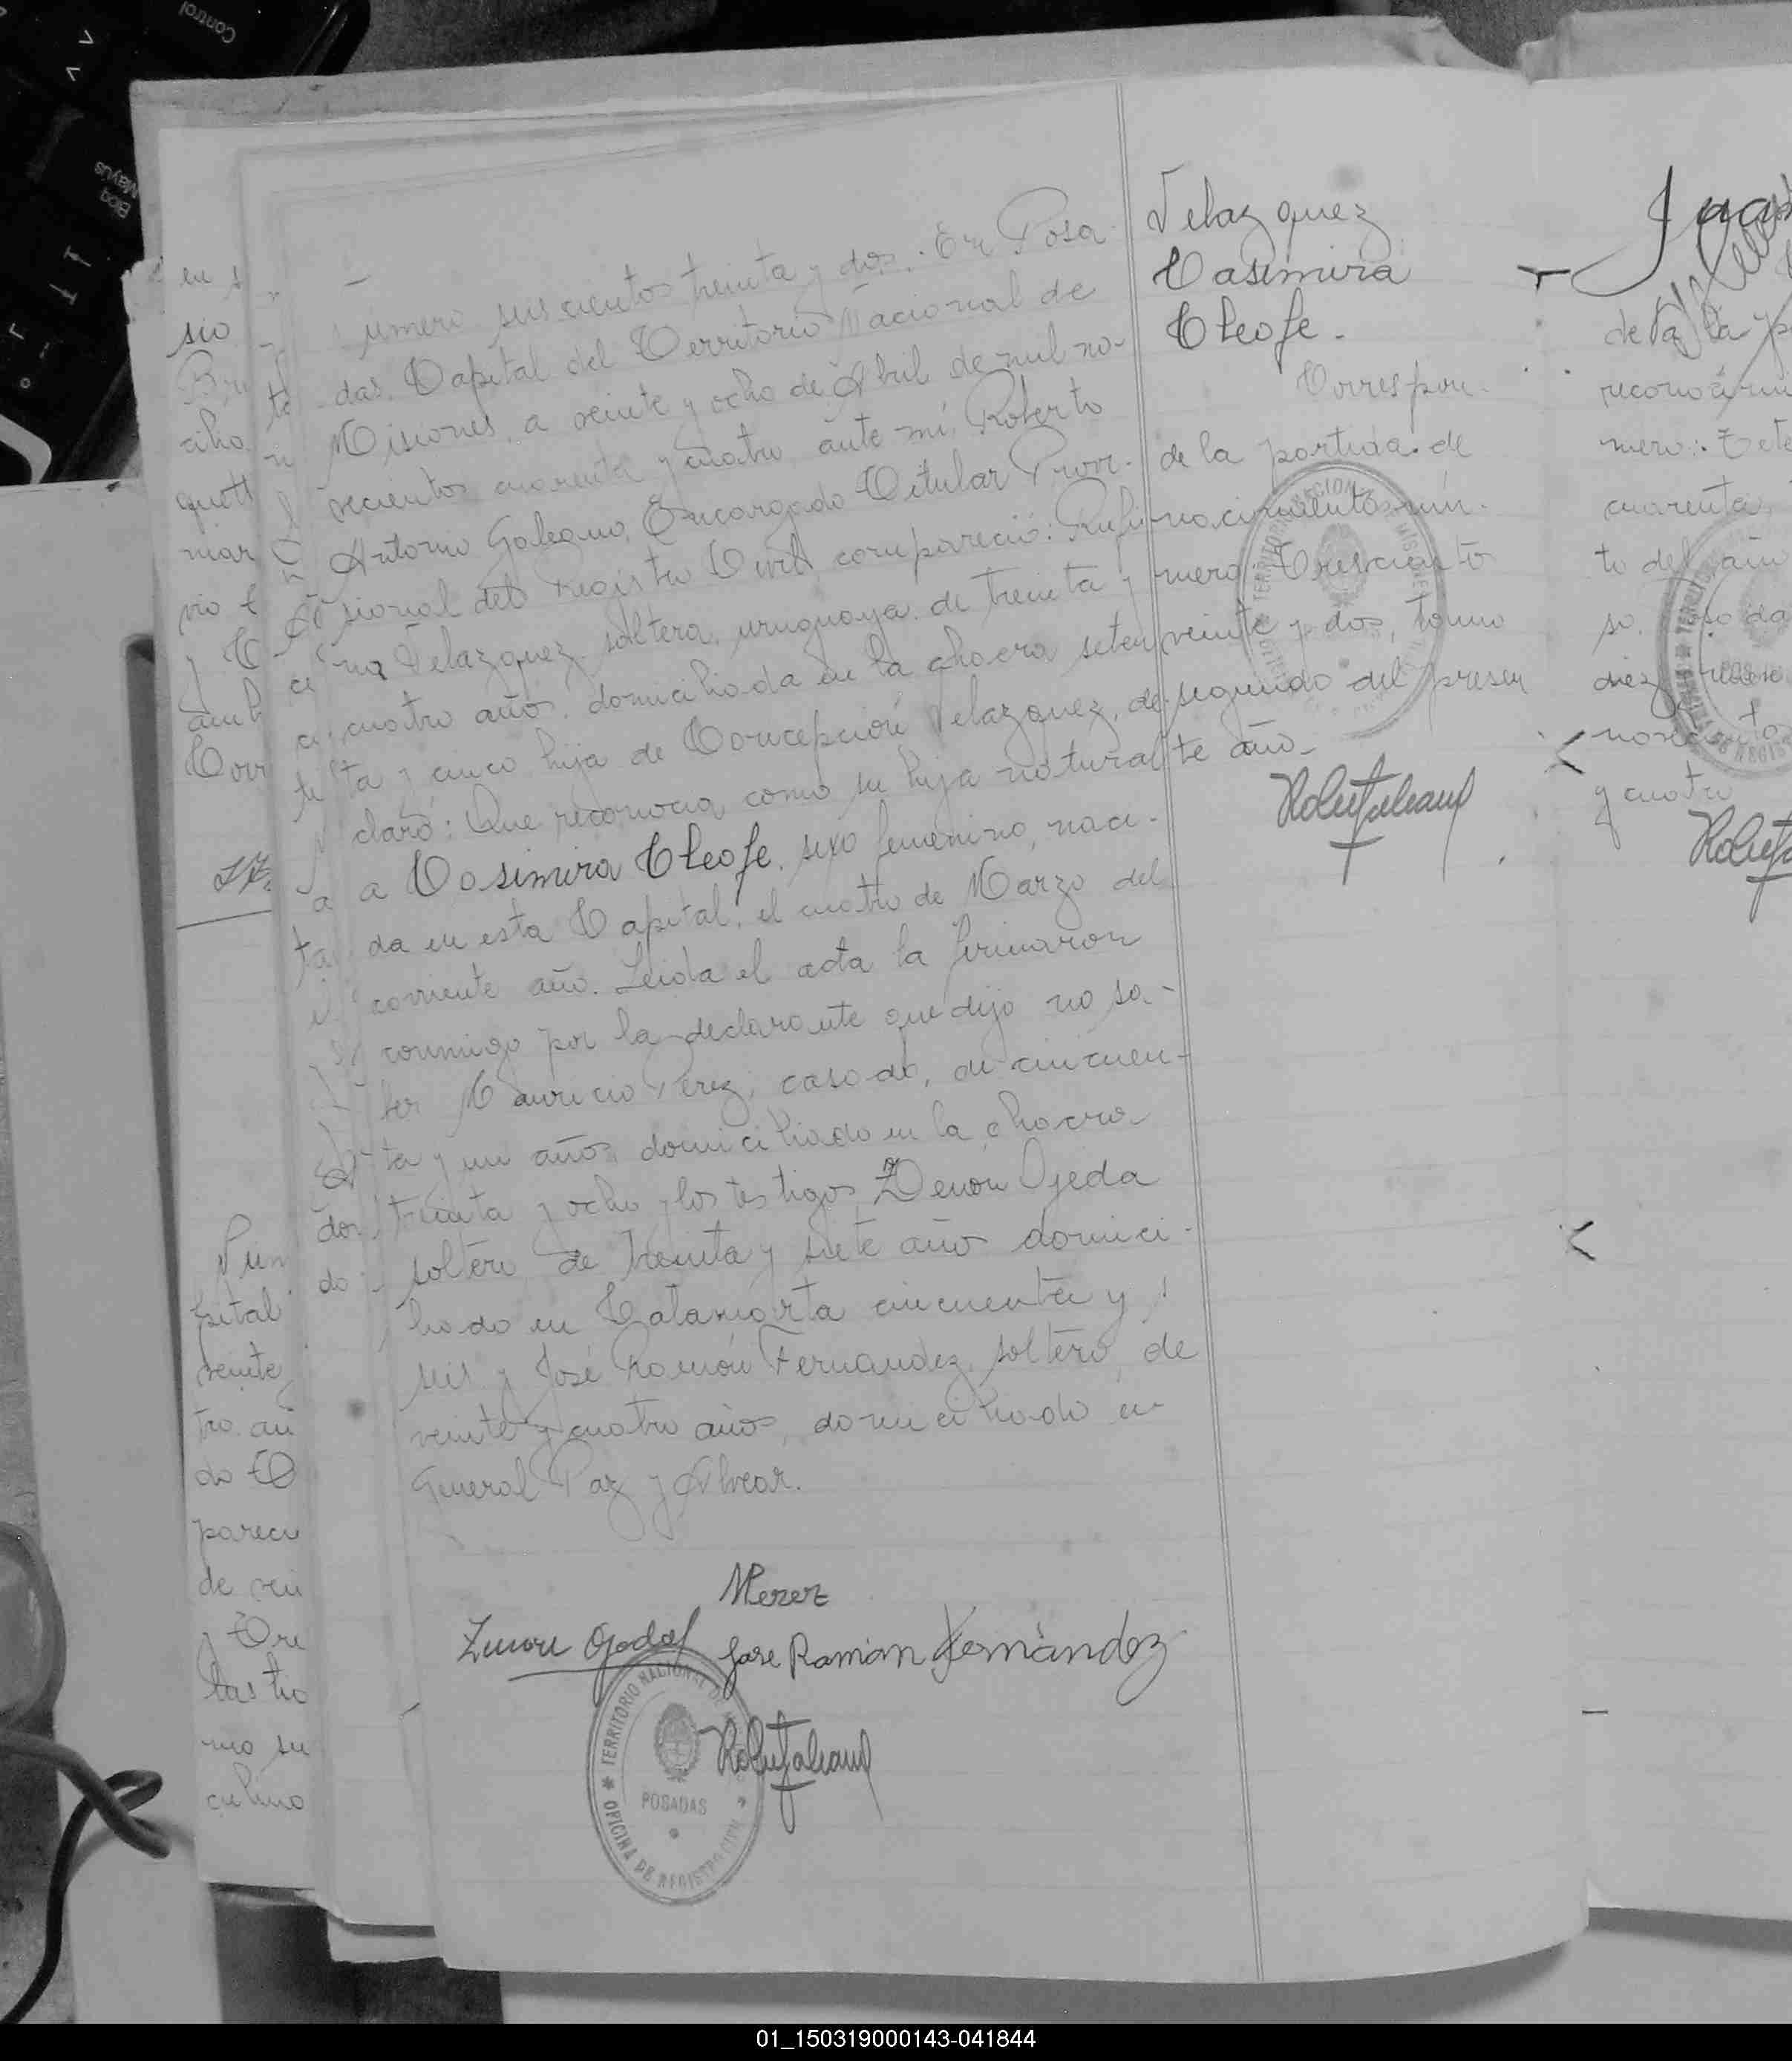 Número seiscientos treinta y dos. En Posa-
das, Capital del Territorio Nacional de
Misiones, a veinte y ocho de Abril de mil no-
vecientos cuarenta y cuatro, ante mí, Roberto
Antonio Galeano, Encargado Titular Provi-
sional del Registro Civil compareció: Rufi-
na Velazquez, soltera, uruguaya, de treinta y
cuatro años, domiciliada en la chacra seten
ta y cinco, hija de Concepción Velazquez, de-
claró: Que reconocia como su hija natural
a Casimira Cleofe, sexo femenino, naci-
da en esta Capital, el cuatro de Marzo del
corriente año. Leida el acta la firmaron
conmigo por la declarante que dijo no sa-
ber Mauricio Perez, casado, de cincuen-
ta y un años, domiciliado en la chacra
treinta y ocho y los testigos Zenón Ojeda
soltero de treinta y siete años domici-
liado en Catamarca cincuenta y
seis y José Ramón Fernandez, soltero, de
veinte y cuatro años, domiciliado en
General Paz y Alvear.
MPerez
Zenon Ojeda
Jose Ramón Fernández
TERRITORIO NACIONAL DE
POSADAS
OFICINA DE REGISTRO CIVIL
Velazquez
Casimira
Cleofe.-
Correspon-
de la partida de
nacimiento nú-
mero Trescientos
veinte y dos, tomo
segundo del presen
te año-
TERRITORIO NACIONAL DE MISIONES
en s
sio
quott
mar
Corr
pital
veinte
tro. an
do
parecu
de vei
las tro
mo su
culino
Juan
de la
reconocimi
mero:
cuarenta
to del año
diez
y cuatro
Control
Bloq
Mayús
01_150319000143-041844